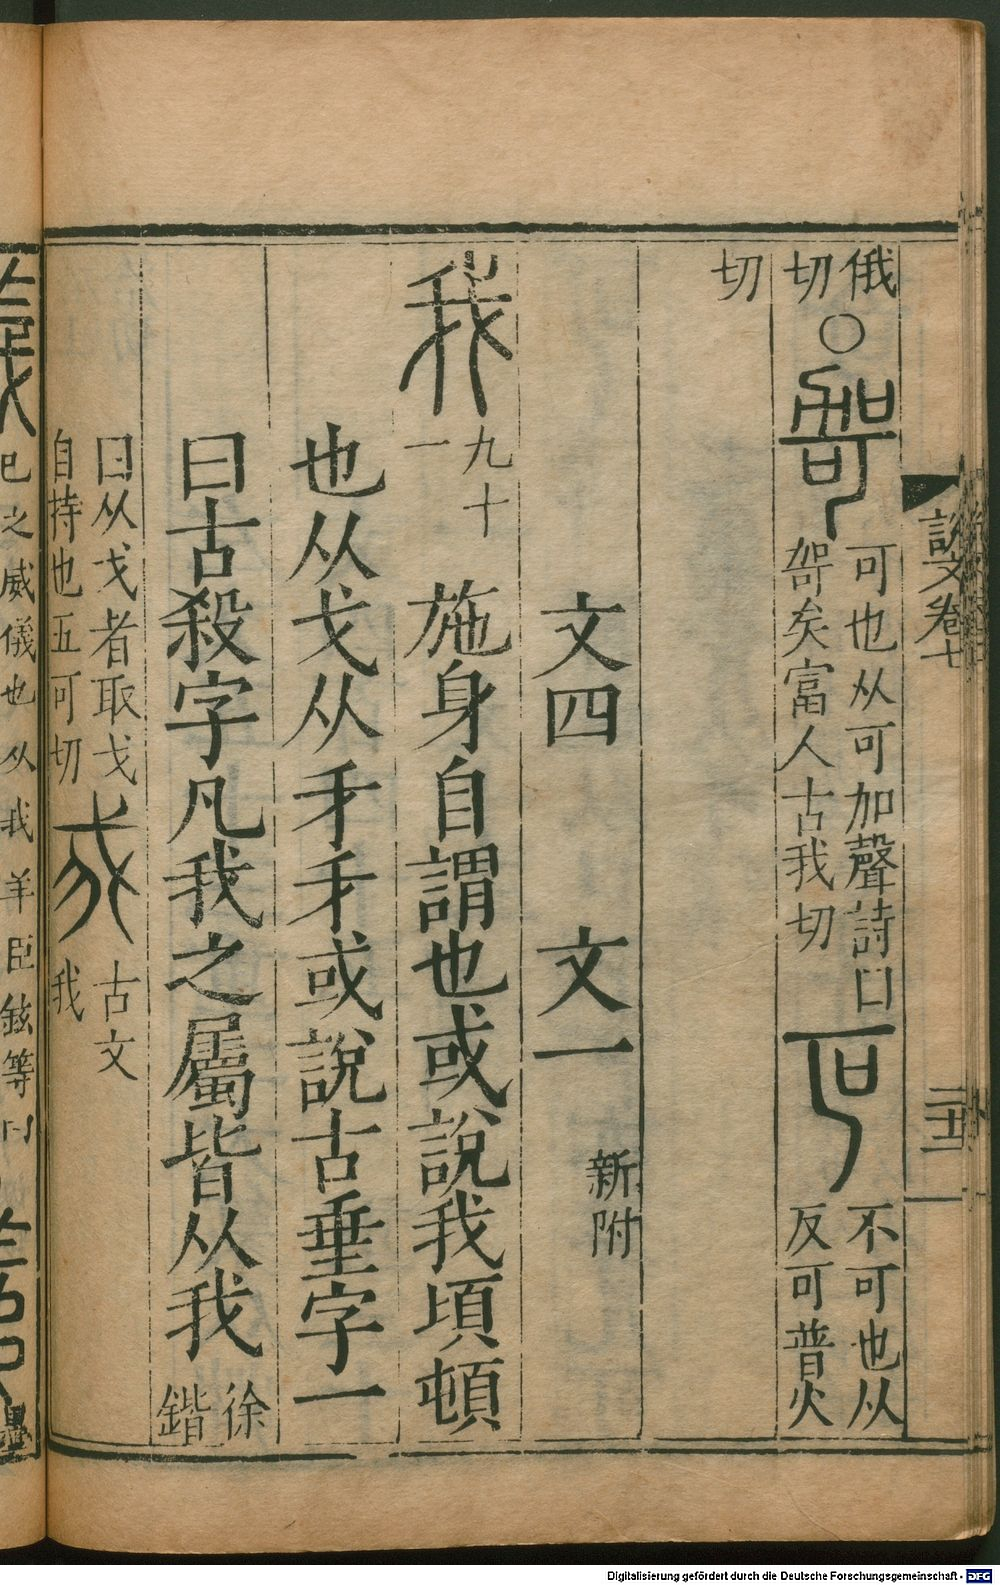 說文卷七
俄
切〇哿可也从可加聲詩曰
哿矣富人古我切叵不可也从
反可普火
切
文四 文一 新附
我 九十一 施身自謂也或說我頃頓
也从戈从𠄒𠄒或說古垂字一
曰古殺字凡我之屬皆从我 徐鍇
曰从戈者取戈
自持也五可切 𢦠 古文
我
義 巳之威儀也从我羊臣鉉等曰
Digitalisierung gefördert durch die Deutsche Forschungsgemeinschaft - DFG